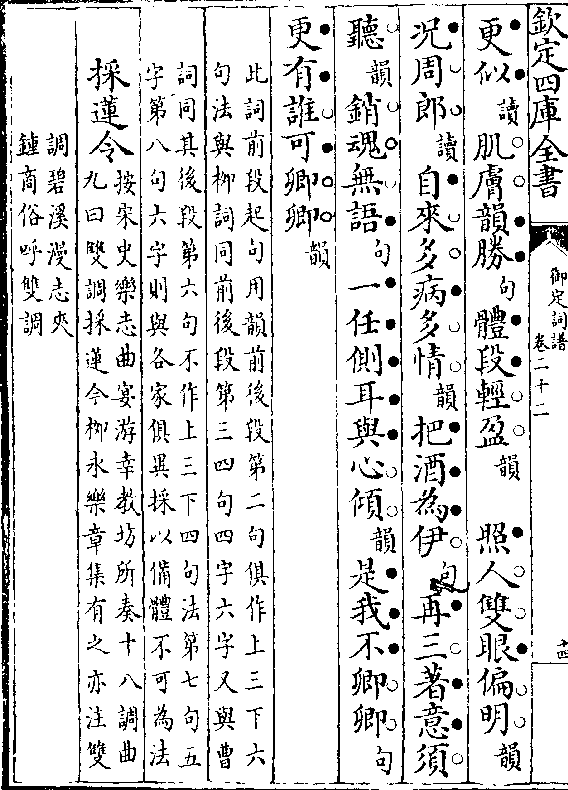 欽定四庫全書
御定詞譜
卷二十二
十四
更似讀肌膚韻勝句體段輕盈韻　照人雙眼偏明韻
况周郎讀自來多病多情韻把酒為伊句再三著意須
聽韻銷魂無語句一任側耳與心傾韻是我不卿卿句
更有誰可卿卿韻
此詞前段起句用韻前後段第二句俱作上三下六
句法與柳詞同前後段第三四句四字六字又與曹
詞同其後段第六句不作上三下四句法第七句五
字第八句六字則與各家俱異採以備體不可為法
採蓮令
按宋史樂志曲宴游幸教坊所奏十八調曲
九曰雙調採蓮令柳永樂章集有之亦注雙
調碧溪漫志夾
鍾商俗呼雙調